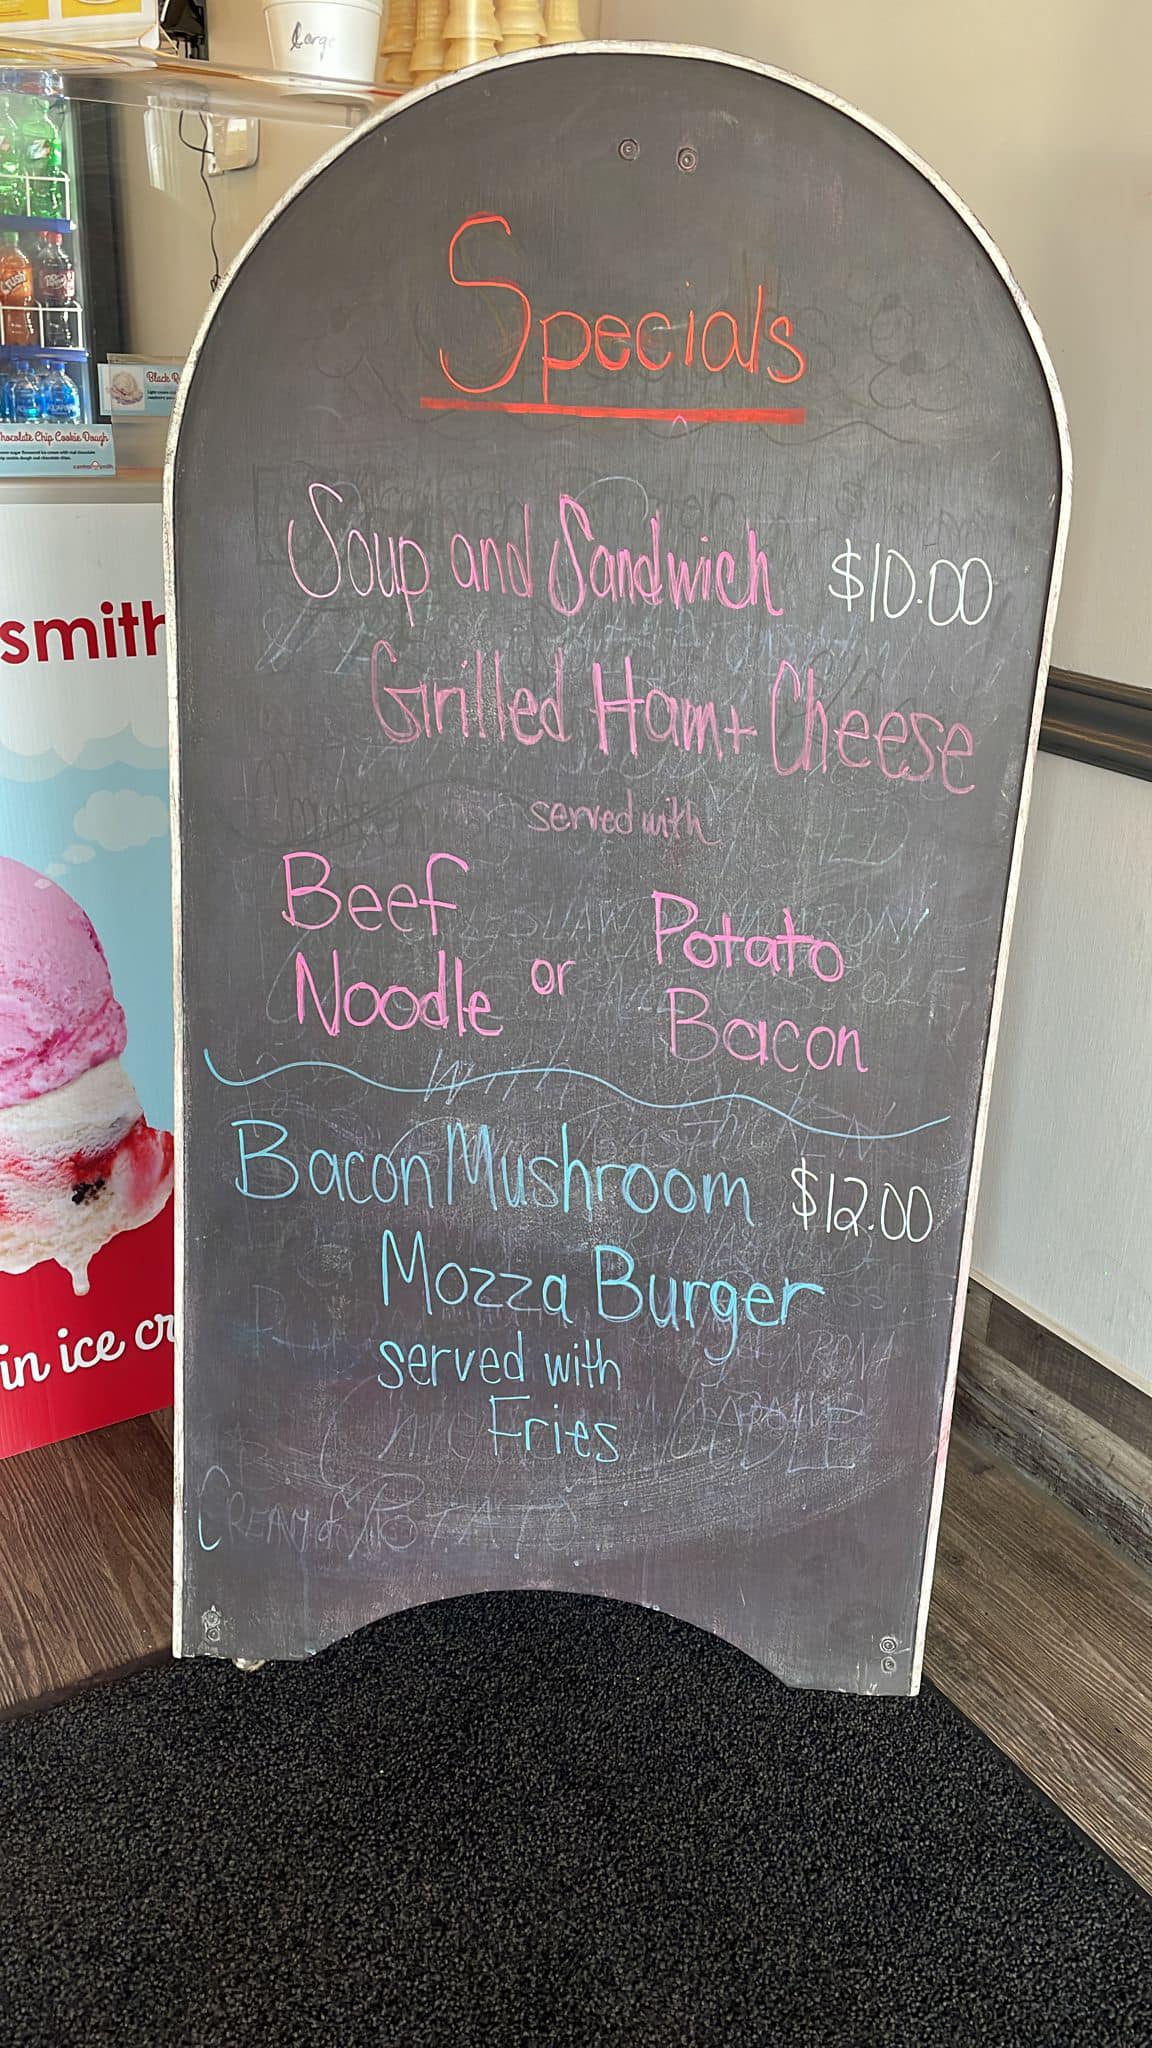 Large
Crush
Black R
Chocolate Chip Cookie Dough
central smith
smith
in ice cr
Specials
Soup and Sandwich $10.00
Grilled Ham + Cheese
served with
Beef Noodle or Potato Bacon
Bacon Mushroom $12.00
Mozza Burger
served with
Fries
CREAM of POTATO